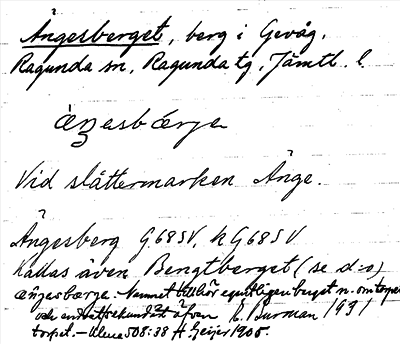 Ängesberget, berg i Gevåg,
Ragunda sn, Ragunda tg, Jämtl. l.
ä́ŋesbærje
Vid slåttermarken Änge.
Ängesberg G68SV, hG68SV
Kallas även Bengtberget (se d:o)
Namnet tillhör egentligen berget n. om torpet
och endast sekundärt äfven E. Burman 1931
torpet. – Ulma 508:38 H. Geijer 1905.